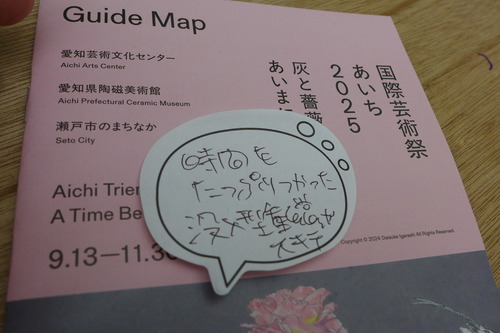 Guide Map
愛知芸術文化センター
Aichi Arts Center
愛知県陶磁美術館
Aichi Prefectural Ceramic Museum
瀬戸市のまちなか
Seto City
国際芸術祭
あいち
2025
灰と薔薇
あいま
時間を
たっぷりつかった
スキデ
Aichi Trie
A Time Be
9.13–11.30
Copyright © 2024 Daisuke Igarashi All Rights Reserved.